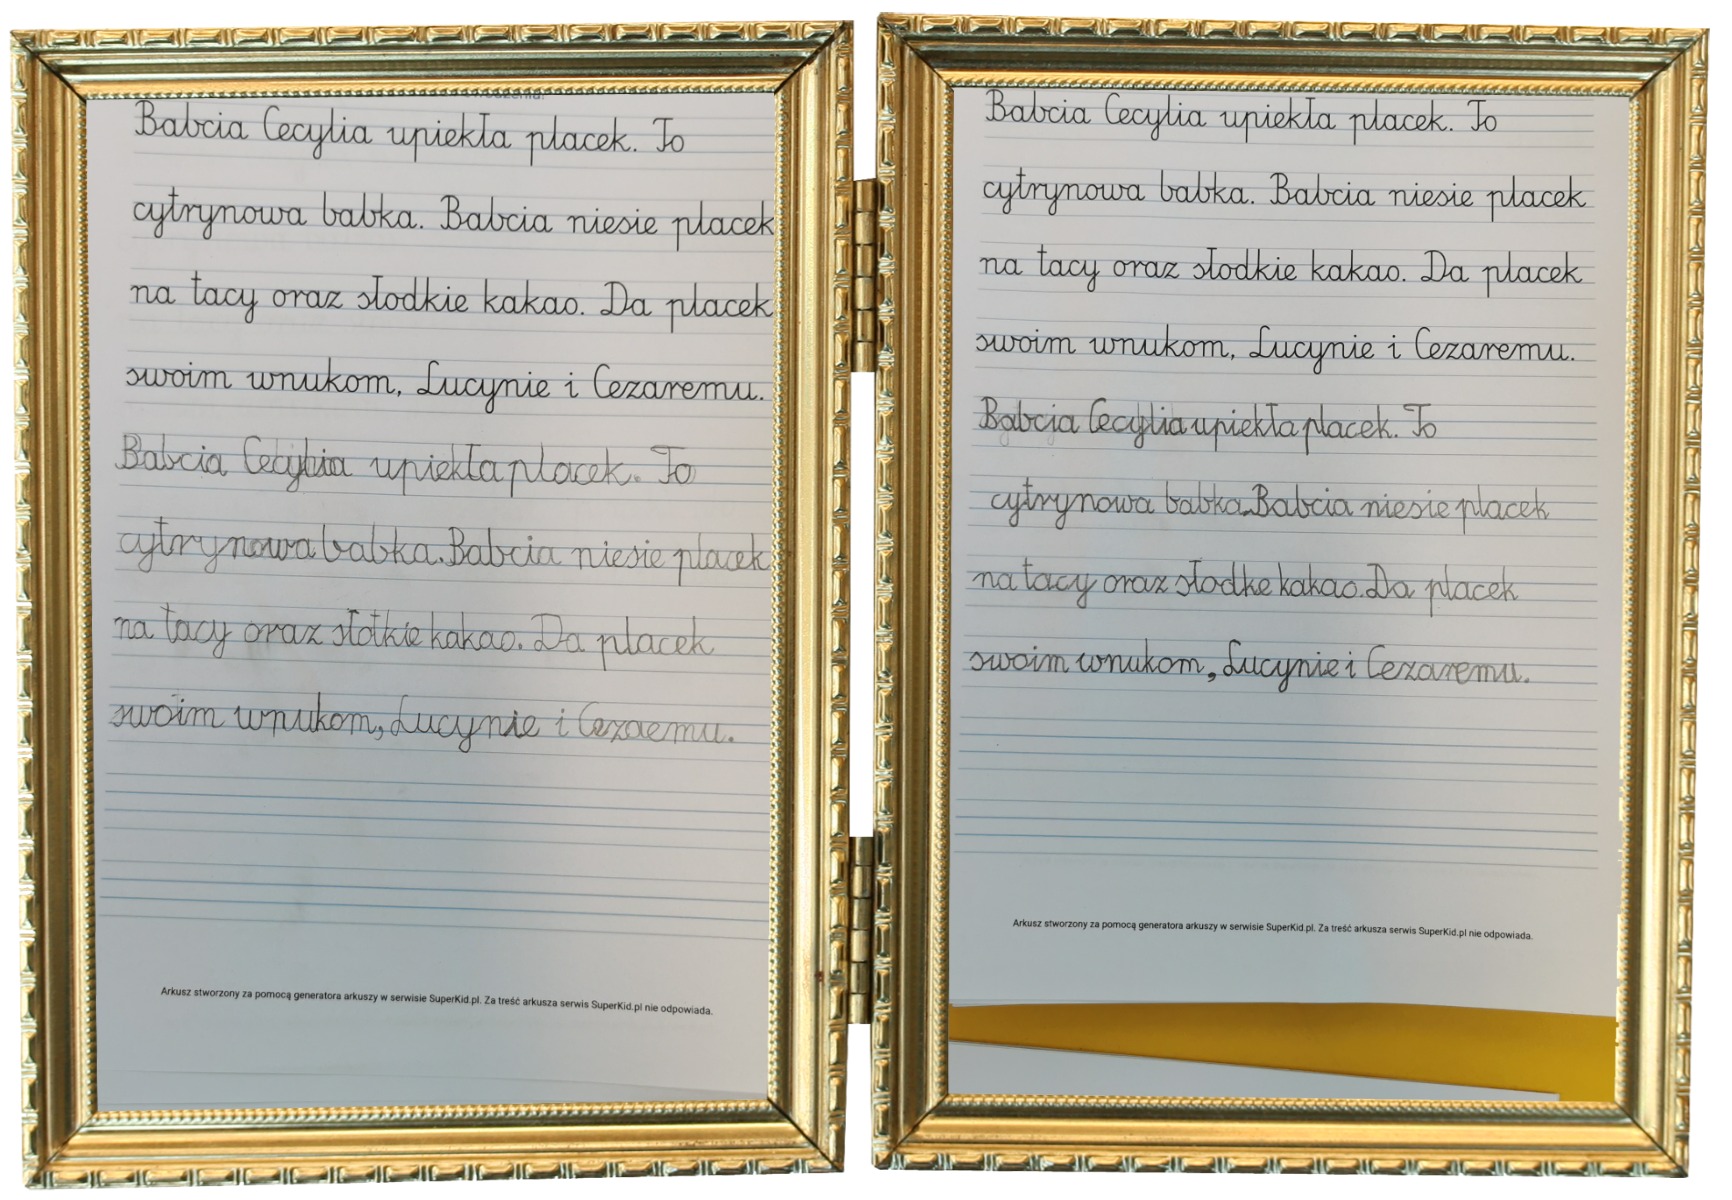 Babcia Cecylia upiekła placek. To
cytrynowa babka. Babcia niesie placek
na tacy oraz słodkie kakao. Da placek
swoim wnukom, Lucynie i Cezaremu.
Babcia Cecylia upiekła placek. To
cytrynowa babka. Babcia niesie placek
na tacy oraz słotkie kakao. Da placek
swoim wnukom, Lucynie i Cezaemu.
Arkusz stworzony za pomocą generatora arkuszy w serwisie SuperKid.pl. Za treść arkusza serwis SuperKid.pl nie odpowiada.
Babcia Cecylia upiekła placek. To
cytrynowa babka. Babcia niesie placek
na tacy oraz słodkie kakao. Da placek
swoim wnukom, Lucynie i Cezaremu.
Babcja Cecylia upiekła placek. To
cytrynowa babka. Babcia niesie placek
na tacy oraz słodke kakao. Da placek
swoim wnukom, Lucynie i Cezaremu.
Arkusz stworzony za pomocą generatora arkuszy w serwisie SuperKid.pl. Za treść arkusza serwis SuperKid.pl nie odpowiada.